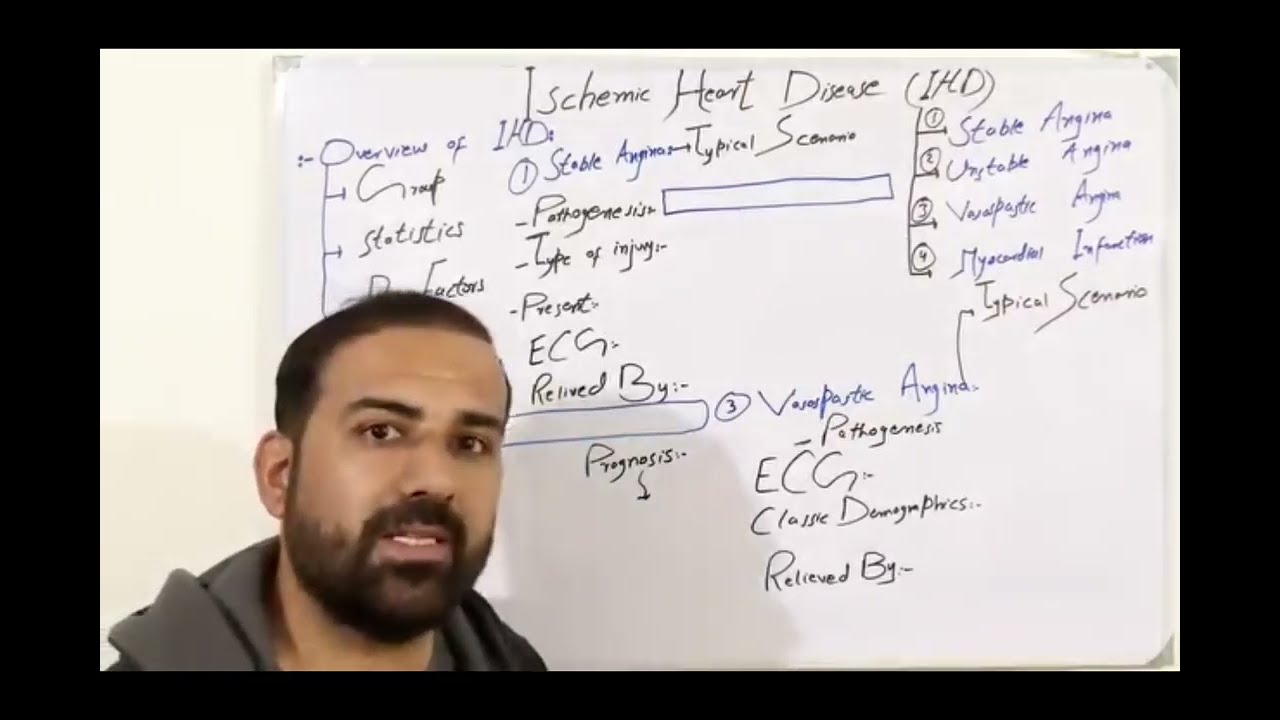 Ischemic Heart Disease (IHD)
:- Overview of IHD:
Group
Statistics
Factors
① Stable Angina → Typical Scenario
- Pathogenesis:-
- Type of injury:-
- Present:-
ECG:-
Relived By:-
Prognosis:-
① Stable Angina
② Unstable Angina
③ Vasospastic Angina
④ Myocardial Infarction
Typical Scenario
③ Vasospastic Angina:-
- Pathogenesis
ECG:-
Classic Demographics:-
Relieved By:-